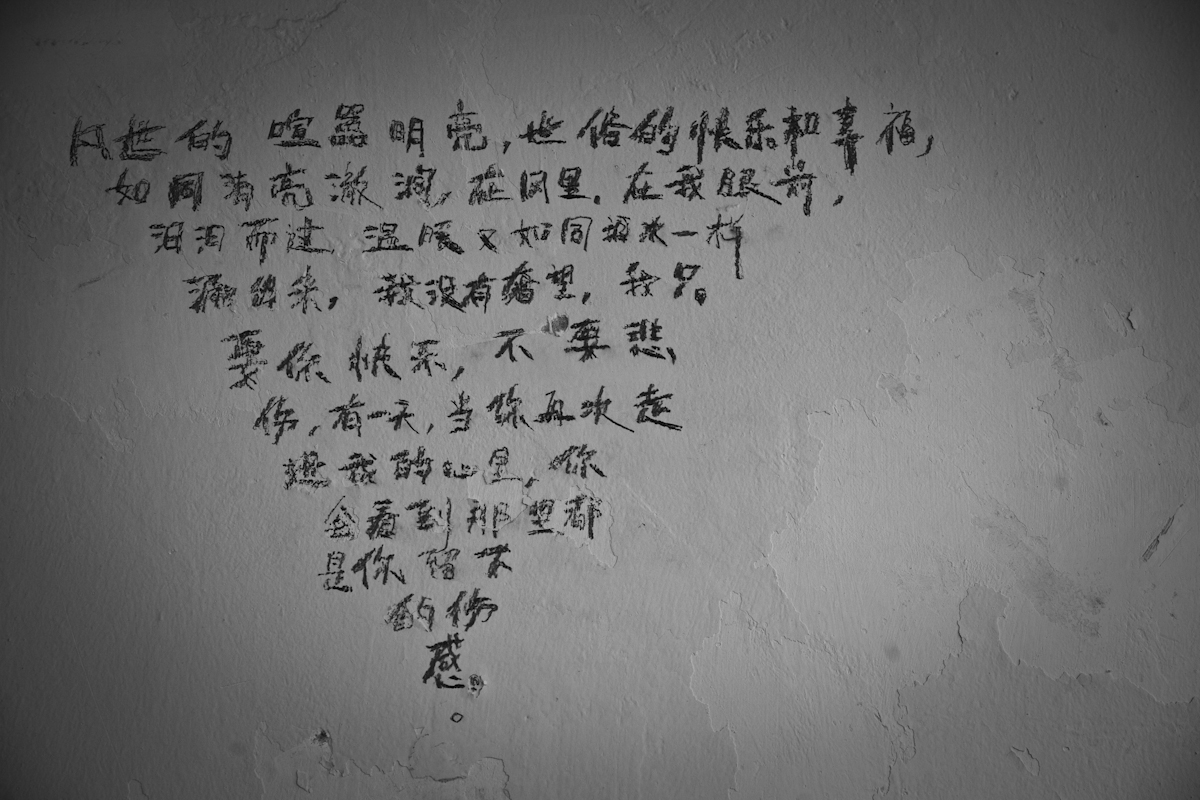 世的喧嚣明亮,世俗的快乐和幸福,
如同清亮澈涧,在风里.在我眼前,
汩汩而过 温暖又如同水一样
出来,我没有奢望,我只。
要你快乐,不要悲
伤,有一天,当你再次走
进我的心里,你
会看到那里都
是你留下
的伤
感。
。